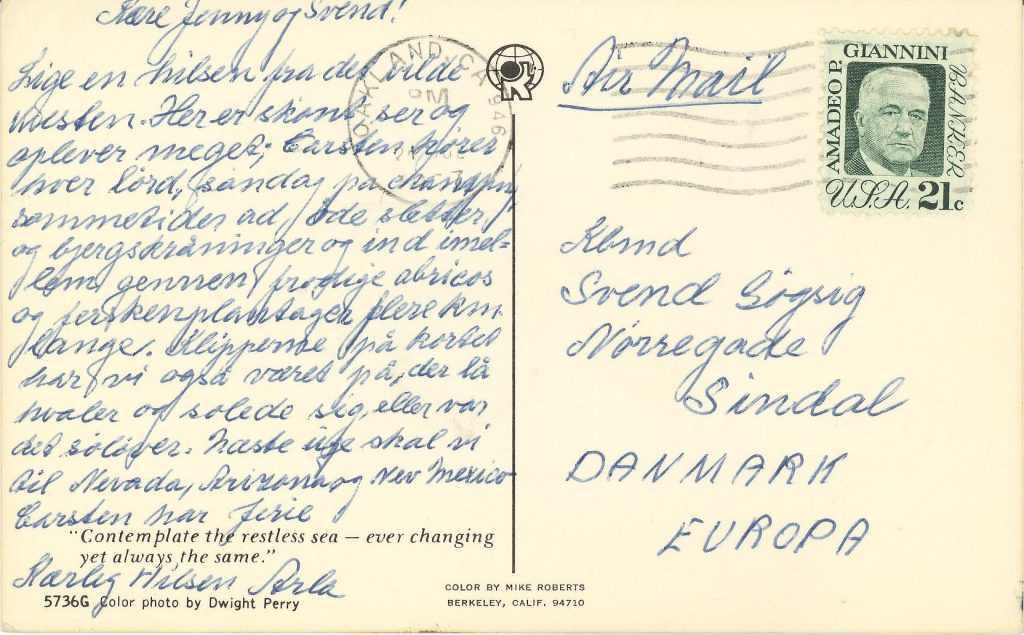 Kære Jenny og Svend!
Lige en hilsen fra det vilde
vesten. Her er skønt, ser og
oplever meget; Carsten kører
hver lörd, søndag på
sommetider ad, øde sletter,
og bjergskråninger og ind imel-
lem gennem frodige abricos
og ferskenplantager flere km.
lange. Klipperne på kortet
har vi også været på, der lå
hvaler og solede sig, eller var
det søløver. Næste uge skal vi
til Nevada, Arizona og New Mexico
Carsten har ferie
"Contemplate the restless sea — ever changing
yet always the same."
Kærlig Hilsen Arla
5736G Color photo by Dwight Perry
COLOR BY MIKE ROBERTS
BERKELEY, CALIF. 94710
OAKLAND, CA 946
PM
Air Mail
AMADEO P. GIANNINI BANKER
U.S.A. 21c
Kbmd
Svend Søgsig
Nørregade
Sindal
DANMARK
EUROPA